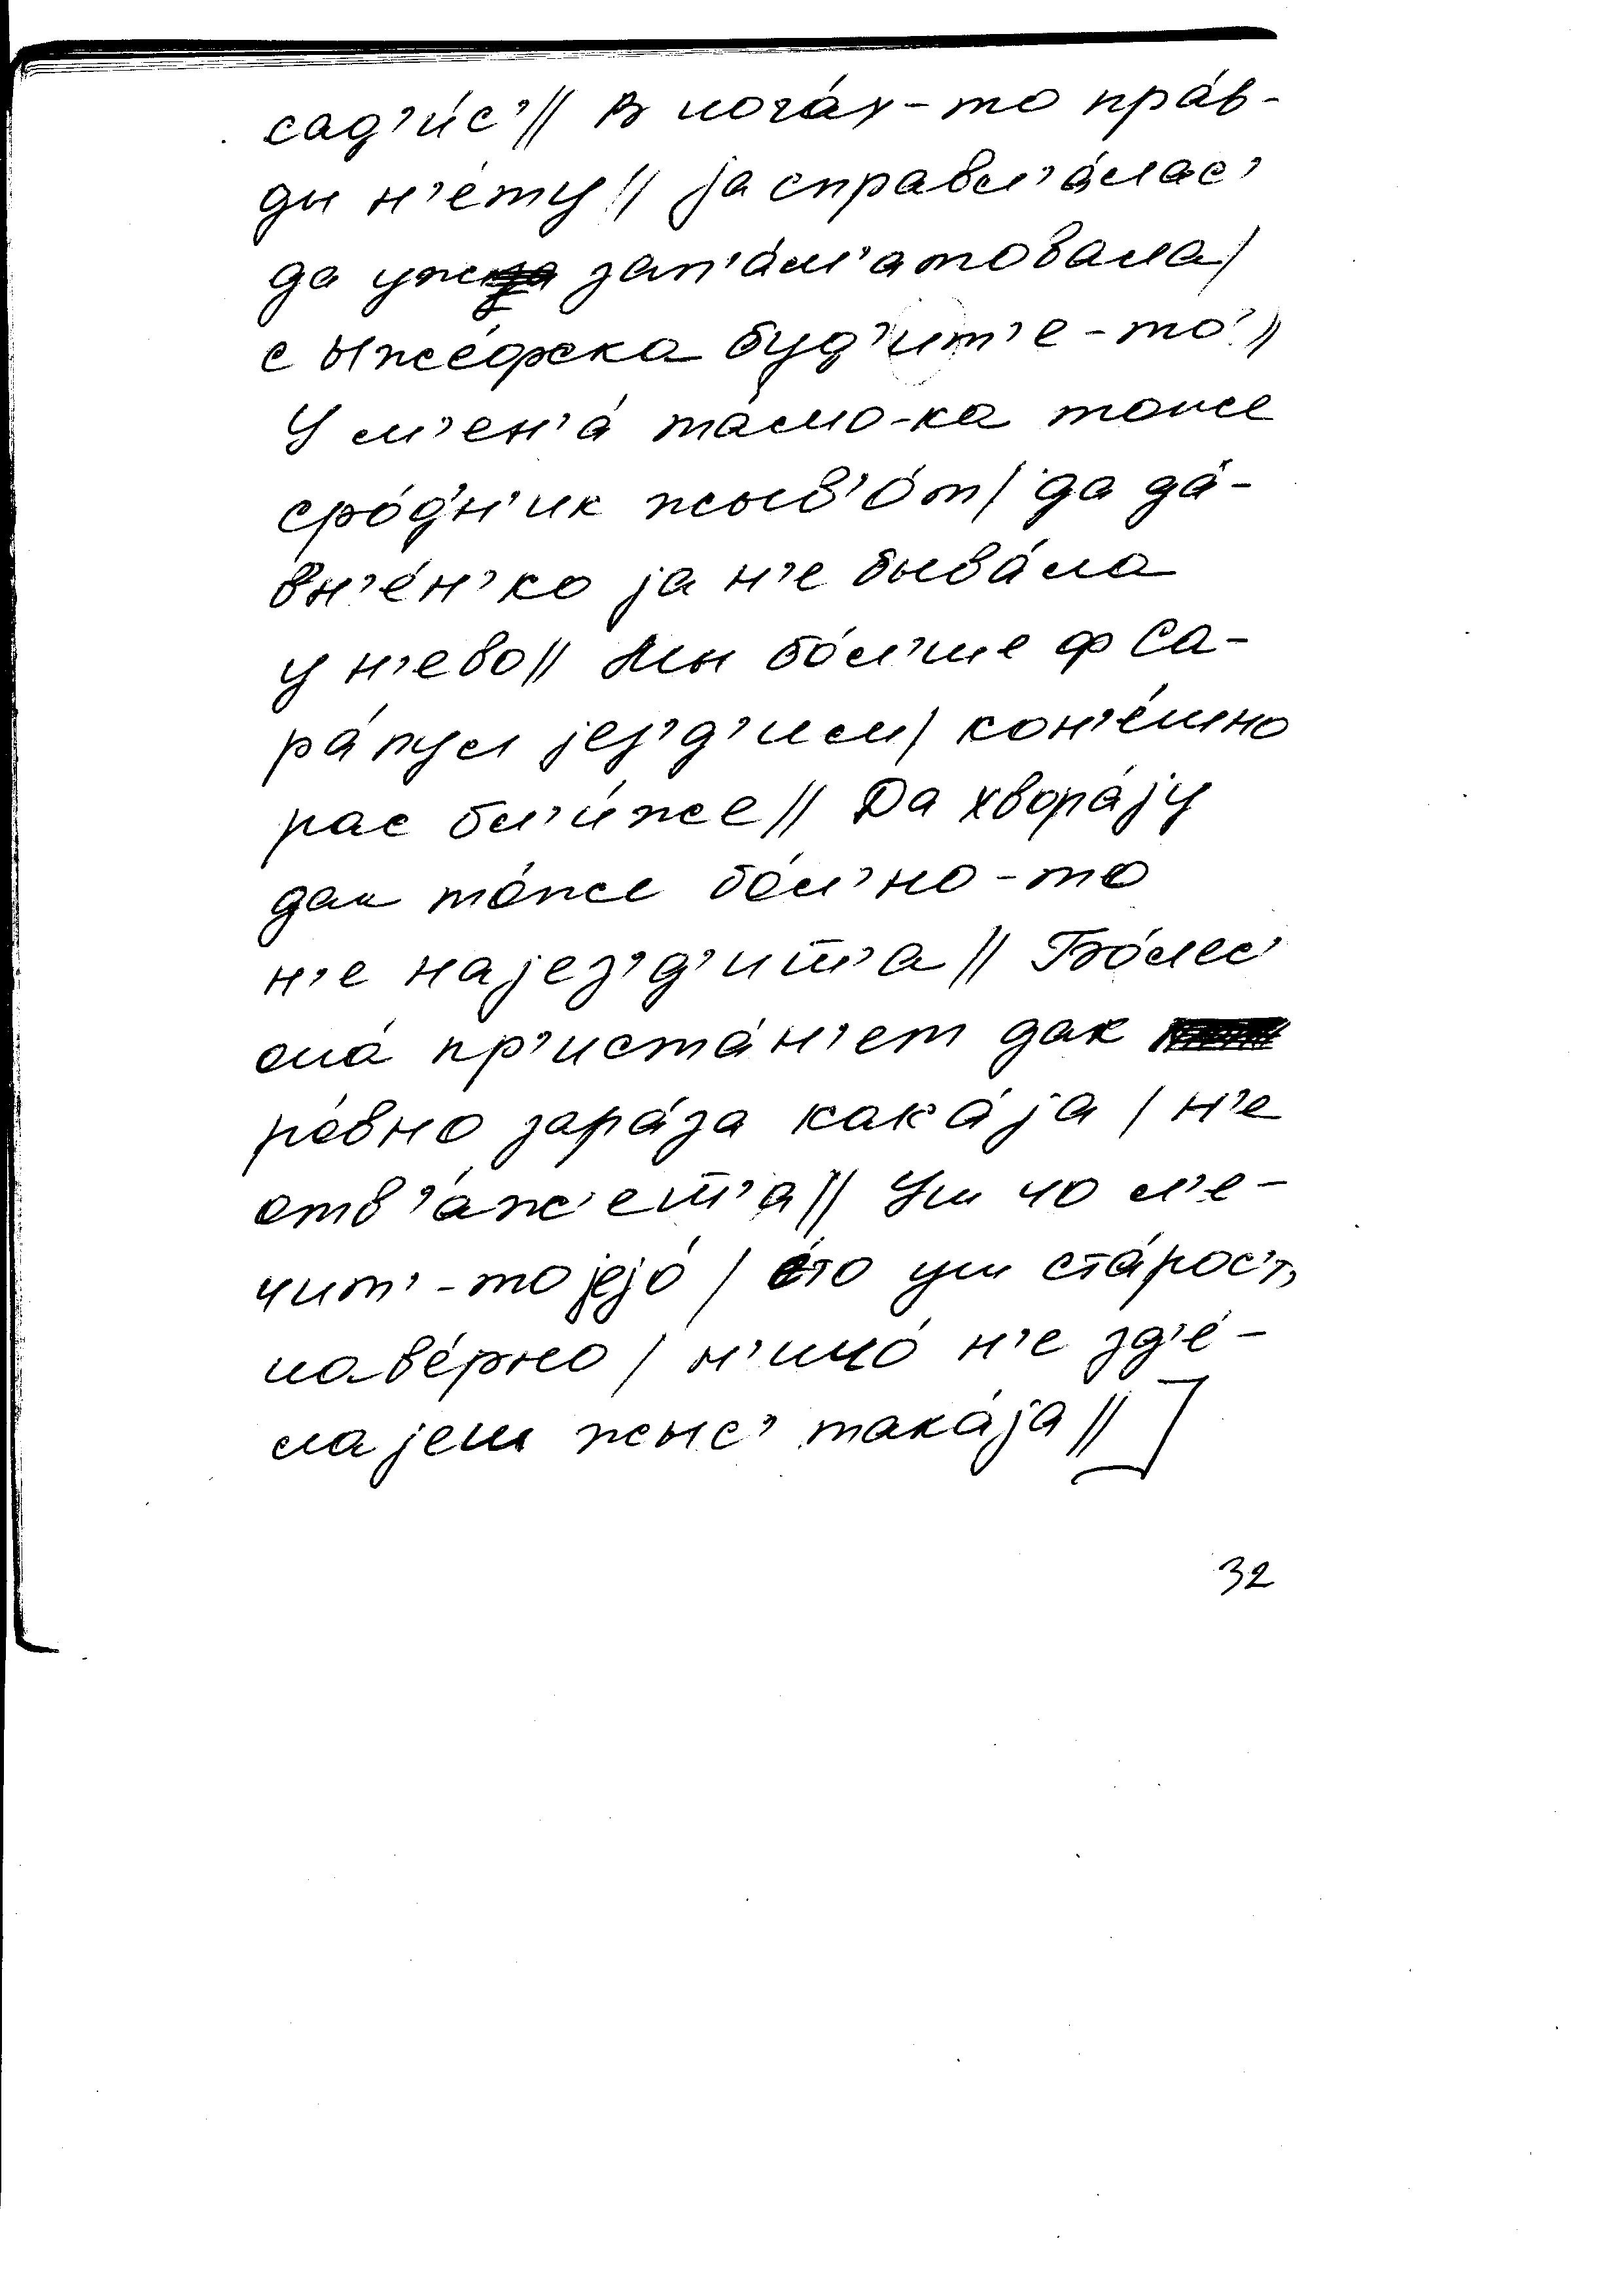 сад’и́с’// В ногáх-то прáв-
ды н’éту // jа справл’áлас’
да уж зап’áм’атовала/
с Ыжéфска буд’ит’е-то́ //
У м’ен’á тáмо-ка тоже
срóдн’ик жыв’óт/ да дá-
вн’éн’ко jа н’е бывáла
у н’ево// Мы бóл’ше ф Са-
рáпул jез’д’им/ кон’éшно
рас бл’и́же// Да хворájу
дак тóже бóл’но-то
н’е наjез’д’ит’а // Бóлес’
онá пр’истáн’ет дак
рóвно зарáза какája / н’е
отв’áж’ет’а// Уш чо л’е-
чит’-то jejó / éто уш стáрост’
навéрно / н’ичó н’е зд’é-
лаjеш жыс’ такája //]
32